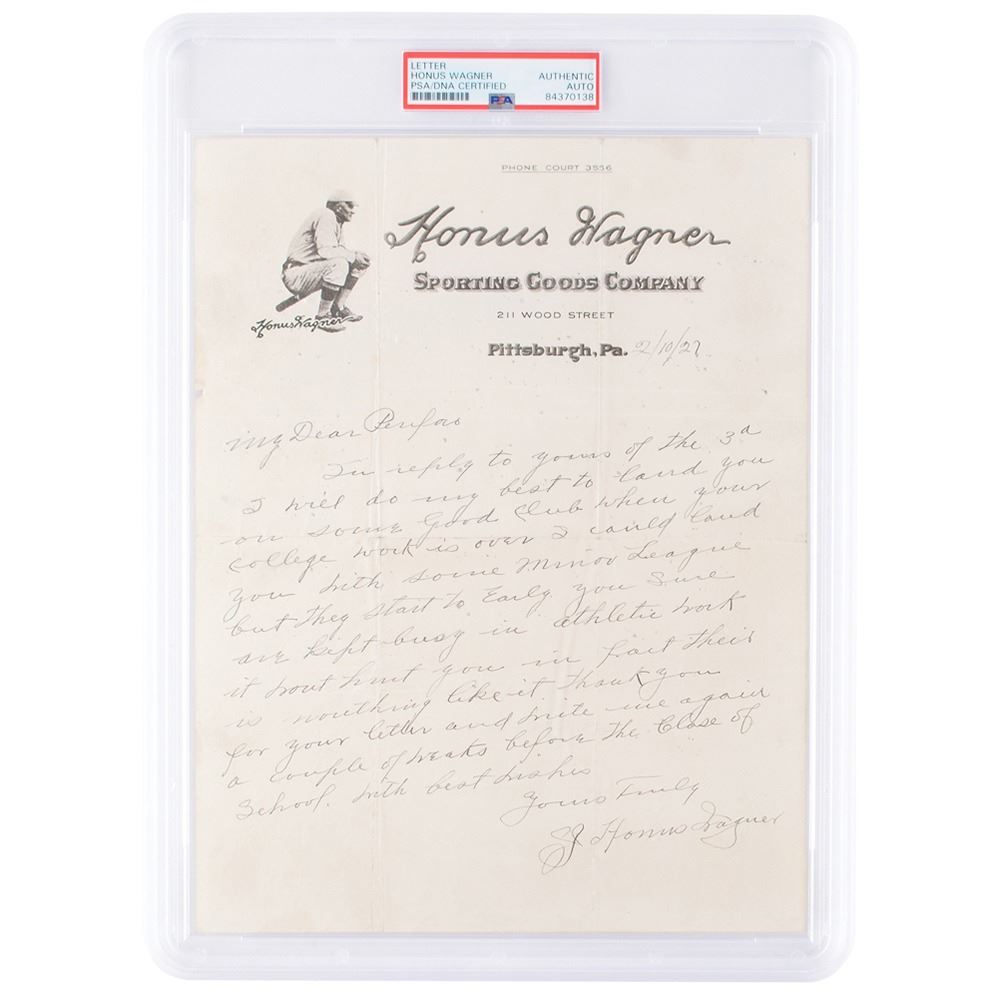 LETTER
HONUS WAGNER
PSA/DNA CERTIFIED
AUTHENTIC
AUTO
PSA
84370138
PHONE COURT 3556
Honus Wagner
Honus Wagner
SPORTING GOODS COMPANY
211 WOOD STREET
Pittsburgh, Pa. 2/10/27
My Dear
In reply to yours of the 3d
I will do my best to land you
on some Good Club when your
college work is over I could land
you with some Minor League
but they start to Early you sure
are kept busy in athletic work
it wont hurt you in fact their
is nouthing like it. thank you
for your letter and write me again
a couple of weaks before the Close of
School. with best wishes
Yours Truly
J Honus Wagner